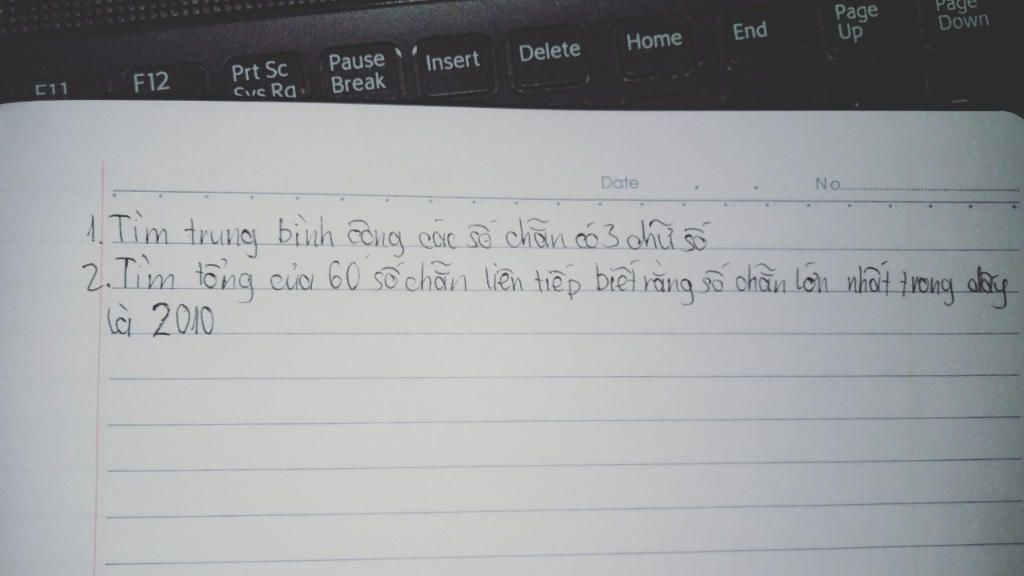 F11 F12 Prt Sc Pause Insert Delete Home End Page Page
Sys Rq Break Up Down
Date No
1. Tìm trung bình cộng các số chẵn có 3 chữ số
2. Tìm tổng của 60 số chẵn liên tiếp biết rằng số chẵn lớn nhất trong dãy
là 2010